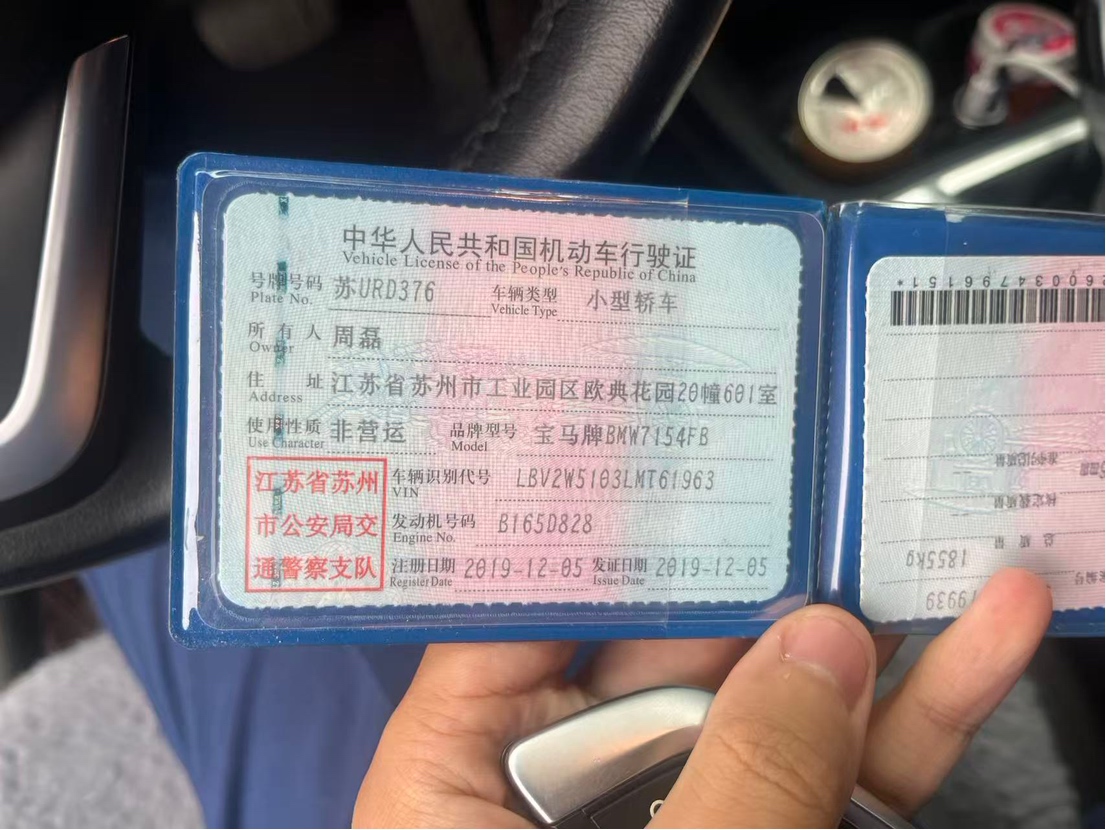 中华人民共和国机动车行驶证
Vehicle License of the People's Republic of China
号牌号码 苏URD376 车辆类型 小型轿车
Plate No. Vehicle Type
所有人 周磊
Owner
住址 江苏省苏州市工业园区欧典花园20幢601室
Address
使用性质 非营运 品牌型号 宝马牌BMW7154FB
Use Character Model
江苏省苏州
市公安局交
通警察支队
车辆识别代号 LBV2W5103LMT61963
VIN
发动机号码 B165D828
Engine No.
注册日期 2019-12-05 发证日期 2019-12-05
Register Date Issue Date
260034796151*
总质量
1855kg